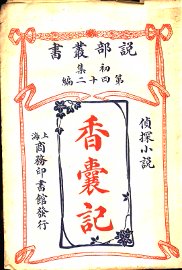 說部叢書
初集
第四十二編
偵探小說
香囊記
上海
商務印書館發行